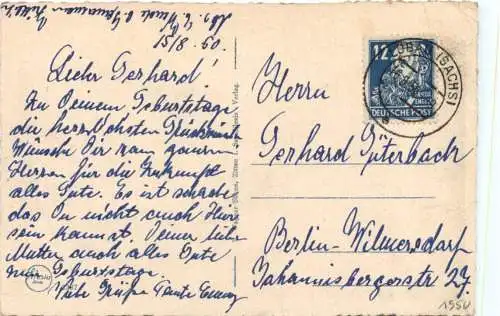 15/8.50.
Lieber Gerhard!
Zu Deinem Geburtstage
die herzlichsten Glückwünsche
Wünsche Dir vom ganzen
Herzen für die Zukunft
alles Gute. Es ist schade
das Du nicht auch hier
sein kannst. Deiner lieben
Mutter auch alles Gute
zum Geburtstage.
Viele Grüße Tante
12
DEUTSCHE POST
(SACHS)
Herrn
Gerhard Güterbach
Berlin-Wilmersdorf
Johannisbergerstr 27.